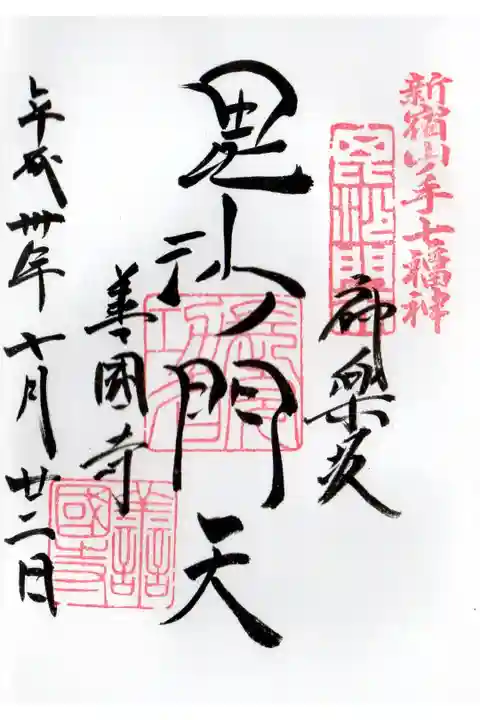 新宿山ノ手七福神
毘沙門天
神楽坂
毘沙門天
善國寺
善國寺
平成卅年十月廿二日